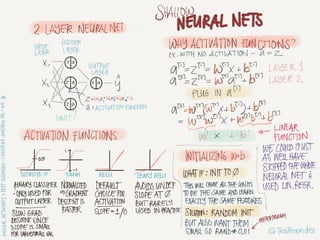 SHALLOW
NEURAL NETS
2 LAYER NEURAL NET
INPUT LAYER
HIDDEN LAYER
OUTPUT LAYER
X₁
X₂
X₃
ŷ
a = ACTIVATION FUNCTION
UNIT
ACTIVATION FUNCTIONS
SIGMOID
TANH
RELU
LEAKY RELU
BINARY CLASSIFIER
ONLY USED FOR OUTPUT LAYER
SLOW GRAD DESCENT SINCE SLOPE IS SMALL FOR LARGE/SMALL VAL
NORMALIZED
GRADIENT DESCENT IS FASTER
DEFAULT CHOICE FOR ACTIVATION
SLOPE = 1/0
AVOIDS UNDEF SLOPE AT 0
BUT RARELY USED IN PRACTICE
WHY ACTIVATION FUNCTIONS?
EX. WITH NO ACTIVATION - a = Z
a[1] = Z[1] = W[1]X + b[1] LAYER 1
a[2] = Z[2] = W[2]a[1] + b[2] LAYER 2
PLUG IN a[1]
a[2] = W[2](W[1]X + b[1]) + b[2]
LINEAR FUNCTION
WE COULD JUST AS WELL HAVE SKIPPED THE WHOLE NEURAL NET & USED LIN. REGR.
INITIALIZING W+b
WHAT IF: INIT TO 0
THIS WILL CAUSE ALL THE UNITS TO BE THE SAME AND LEARN EXACTLY THE SAME FEATURES
SOLUTION: RANDOM INIT
BUT ALSO WANT THEM SMALL SO RAND * 0.01
@TessFerrandez